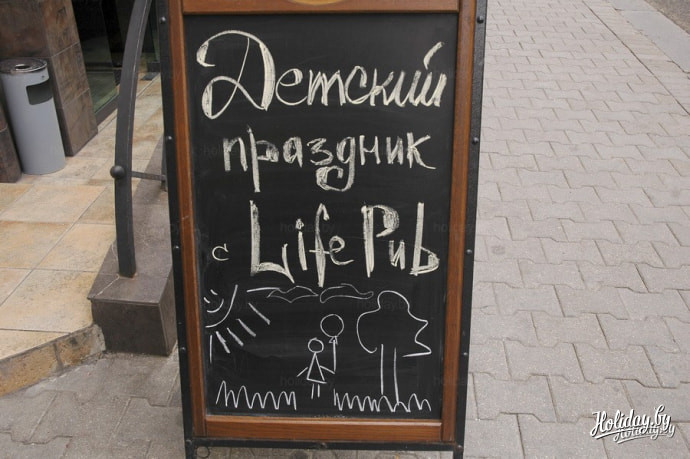 Детский
праздник
с Life Pub
Holiday.by